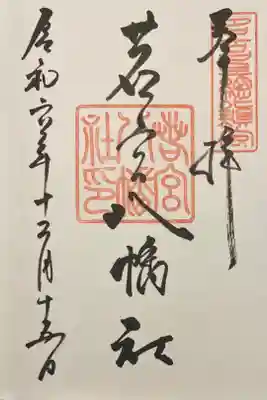 名古屋総鎮守
奉拝
若宮八幡社
若宮
八幡
社印
令和六年十二月十五日